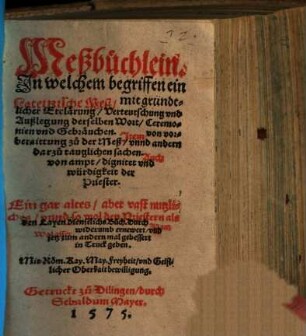 12
Meßbüchlein.
In welchem begriffen ein
Lateinische Meß / mit gründt-
licher Erklärung / Verteutschung vnd
Außlegung derselben Wort / Ceremo-
nien vnd Gebräuchen. Item von vor-
beraittung zů der Meß / vnnd andern
darzů tauglichen sachen. Auch
von ampt / dignitet vnd
würdigkeit der
Priester.
Ein gar altes / aber vast nutzlich
vnd so wol den Priestern als
den Layen dienstliche Bůch. Durch
widerumb ernewert / vnd
jetz zum andern mal gebessert
in Truck geben.
Mit Röm. Kay. May. Freyheit / vnd Geist-
licher Oberkait bewilligung.
Getruckt zů Dilingen / durch
Sebaldum Mayer.
1575.